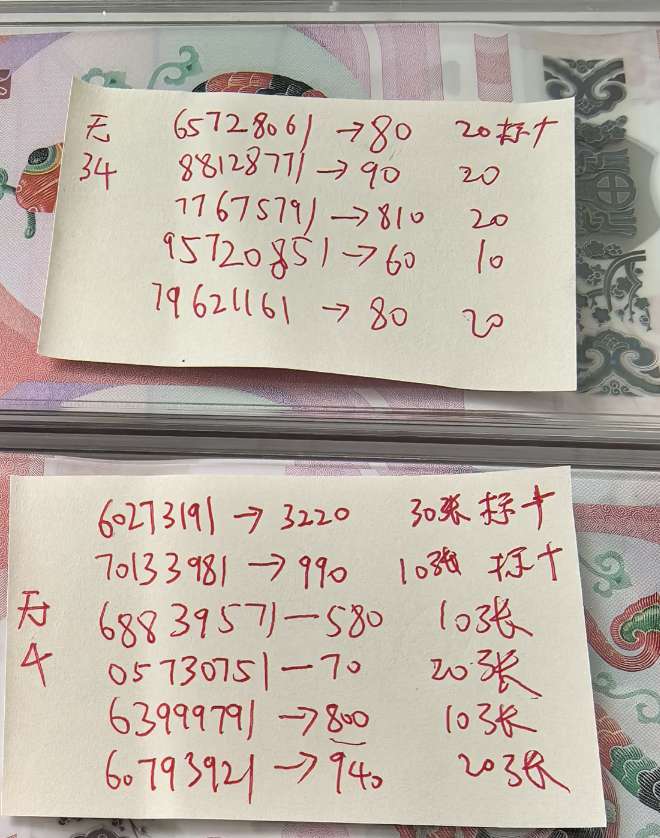 无 65728061→80 20标十
34 88128771→90 20
77675791→810 20
95720851→60 10
79621161→80 20
60273191→3220 30张标十
70133981→990 10张 标十
无 68839571—580 10张
4 05730751—70 20张
63999791→800 10张
60793921→940 20张